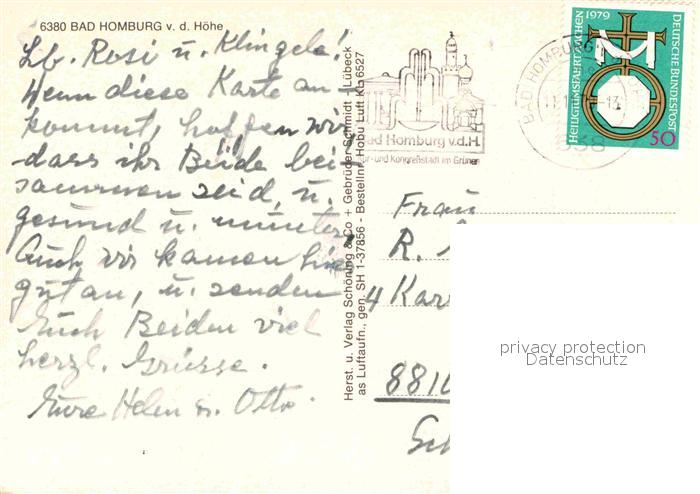 6380 BAD HOMBURG v. d. Höhe
Lb. Rosi u. Klingele!
Wenn diese Karte an-
kommt, hoffen wir
dass ihr Beide bei-
sammen seid, u.
gesund u. munter.
Auch wir kamen hier
gut an, u. senden
Euch Beiden viel
herzl. Grüsse.
Eure Helen u. Otto.
Herst. u. Verlag Schöning & Co + Gebrüder Schmidt - Lübeck
as Luftaufn., gen. SH 1-37856 - Bestellnr. Hobu Luft KL 6527
Bad Homburg v.d.H.
Kur- und Kongreßstadt im Grünen
BAD HOMBURG
638
HEILIGTUMSFAHRT AACHEN 1979
DEUTSCHE BUNDESPOST
50
Frau
R.
4 Kar
8810
privacy protection
Datenschutz